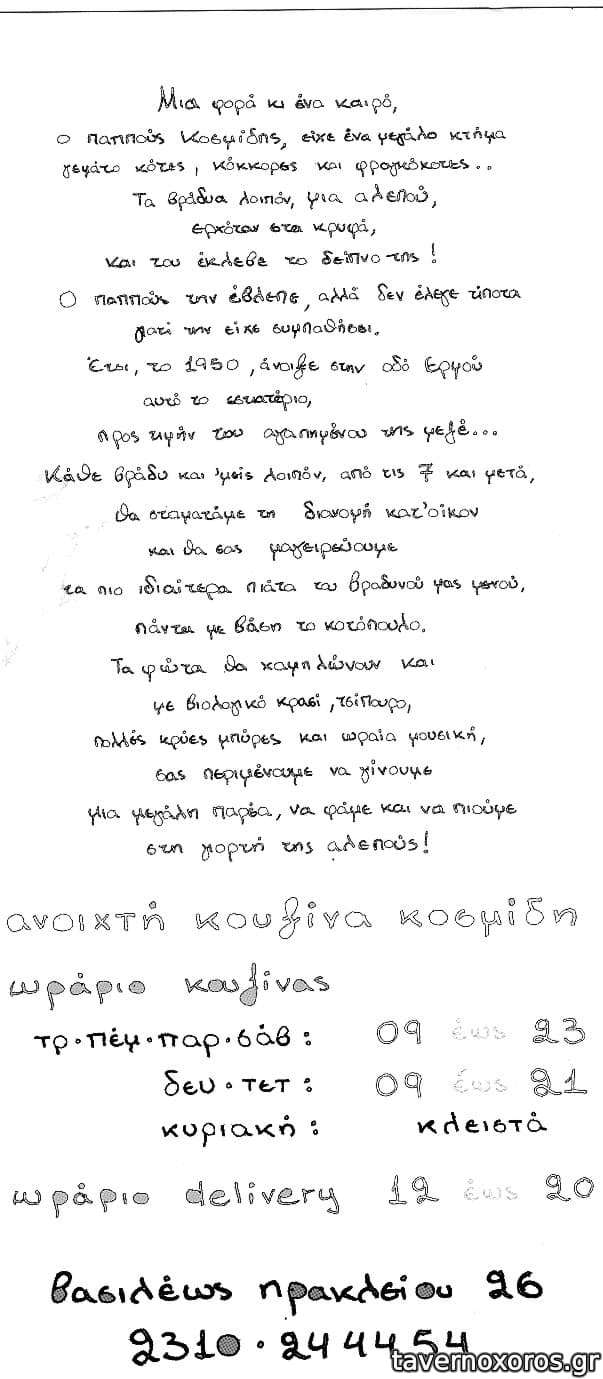 Μια φορά κι ένα καιρό,
ο παππούς Κοσμίδης, είχε ένα μεγάλο κτήμα
γεμάτο κότες, κόκκορες και φραγκόκοτες..
Τα βράδυα λοιπόν, μια αλεπού,
ερχόταν στα κρυφά,
και του έκλεβε το δείπνο της!
Ο παππούς την έβλεπε, αλλά δεν έλεγε τίποτα
γιατί την είχε συμπαθήσει.
Έτσι, το 1950, άνοιξε στην οδό Ερμού
αυτό το εστιατόριο,
προς τιμήν του αγαπημένου της μεζέ...
Κάθε βράδυ και 'μείς λοιπόν, από τις 7 και μετά,
θα σταματάμε τη διανομή κατ'οίκον
και θα σας μαγειρεύουμε
τα πιο ιδιαίτερα πιάτα του βραδυνού μας μενού,
πάντα με βάση το κοτόπουλο.
Τα φώτα θα χαμηλώνουν και
με βιολογικό κρασί, τσίπουρο,
πολλές κρύες μπύρες και ωραία μουσική,
σας περιμένουμε να γίνουμε
μια μεγάλη παρέα, να φάμε και να πιούμε
στη γιορτή της αλεπούς!
ανοιχτή κουζίνα κοσμίδη
ωράριο κουζίνας
τρ・πέμ・παρ・σάβ: 09 έως 23
δευ・τετ: 09 έως 21
κυριακή: κλειστά
ωράριο delivery 12 έως 20
βασιλέως ηρακλείου 26
2310・244454
tavernoxoros.gr